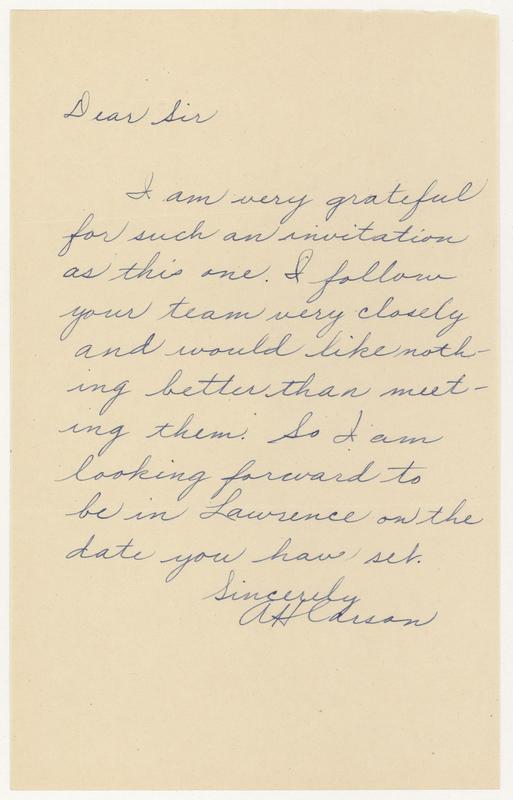 Dear Sir
I am very grateful
for such an invitation
as this one. I follow
your team very closely
and would like noth-
ing better than meet-
ing them. So I am
looking forward to
be in Lawrence on the
date you have set.
Sincerely
AH Carson